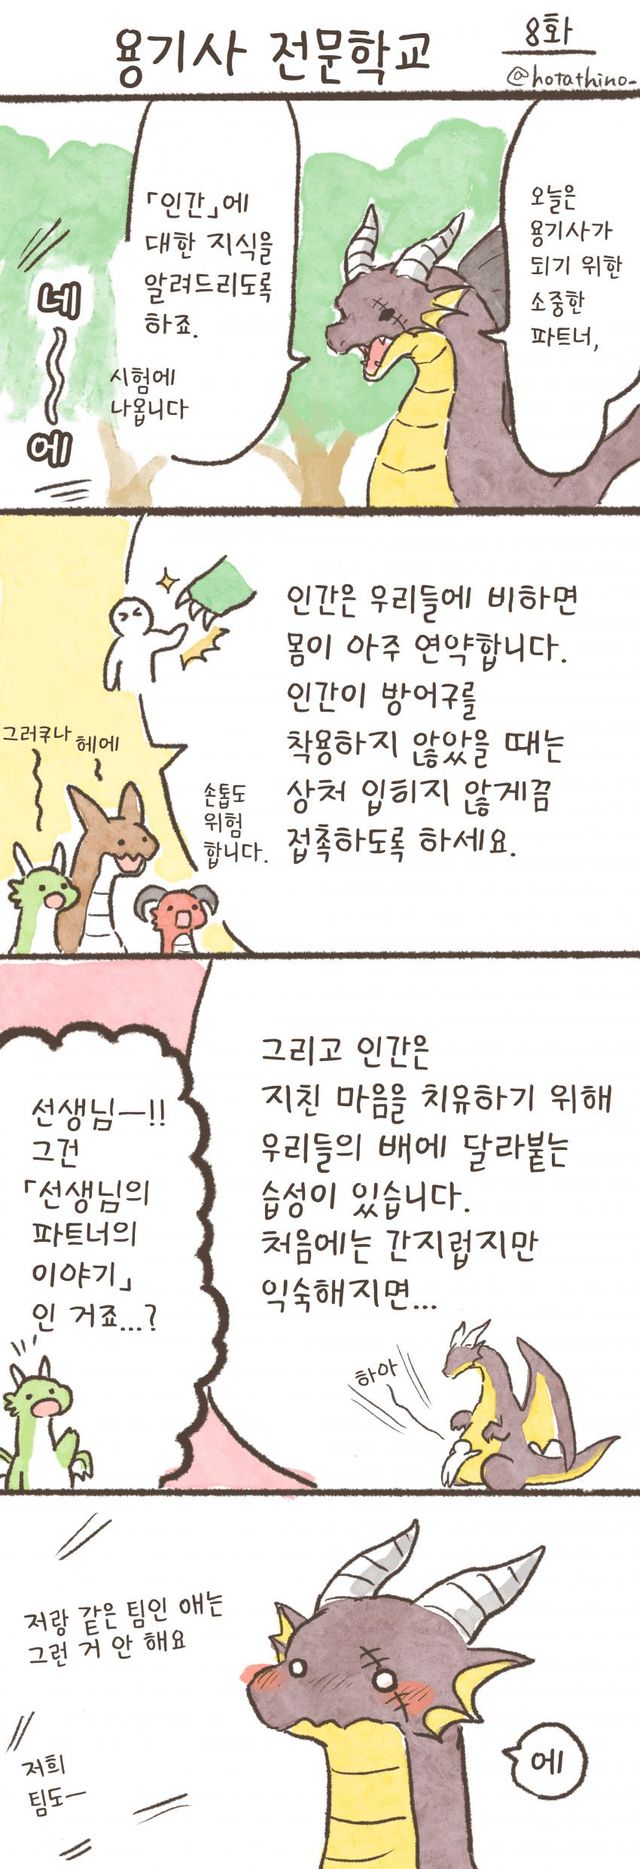 용기사 전문학교
8화
@hotathino_
오늘은
용기사가
되기 위한
소중한
파트너,
「인간」에
대한 지식을
알려드리도록
하죠.
시험에
나옵니다
네~에
인간은 우리들에 비하면
몸이 아주 연약합니다.
인간이 방어구를
착용하지 않았을 때는
상처 입히지 않게끔
접촉하도록 하세요.
손톱도
위험
합니다.
그러쿠나
헤에
그리고 인간은
지친 마음을 치유하기 위해
우리들의 배에 달라붙는
습성이 있습니다.
처음에는 간지럽지만
익숙해지면...
하아
선생님ㅡ!!
그건
「선생님의
파트너의
이야기」
인 거죠...?
저랑 같은 팀인 애는
그런 거 안 해요
에
저희
팀도ㅡ